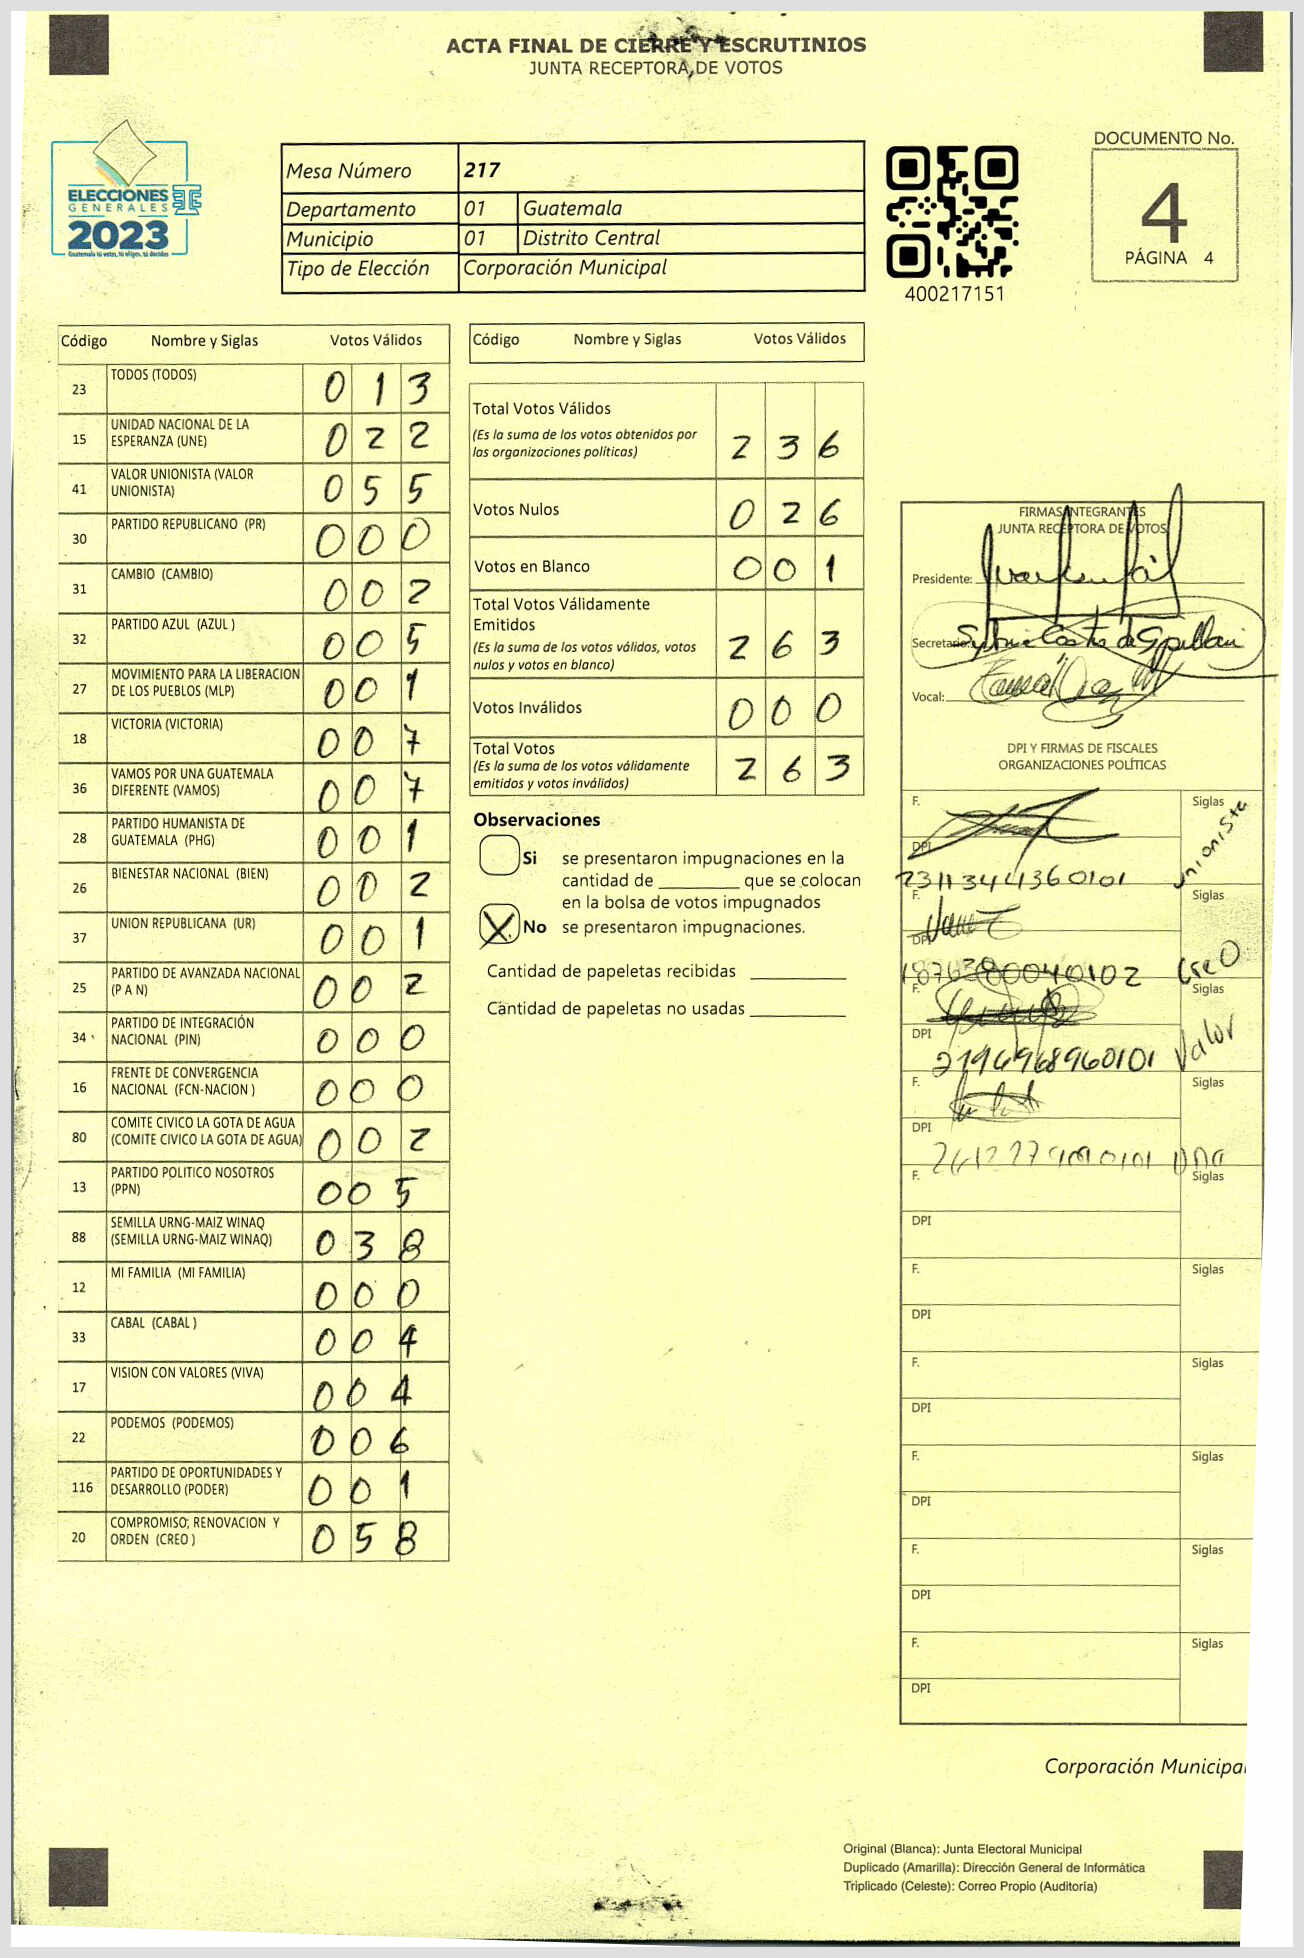 ACTA FINAL DE CIERRE Y ESCRUTINIOS
JUNTA RECEPTORA DE VOTOS
ELECCIONES
GENERALES
2023
Guatemala tú votas, tú eliges, tú decides
Mesa Número 217
Departamento 01 Guatemala
Municipio 01 Distrito Central
Tipo de Elección Corporación Municipal
400217151
DOCUMENTO No.
4
PÁGINA 4
Código Nombre y Siglas Votos Válidos
23 TODOS (TODOS) 0 1 3
15 UNIDAD NACIONAL DE LA
ESPERANZA (UNE) 0 2 2
41 VALOR UNIONISTA (VALOR
UNIONISTA) 0 5 5
30 PARTIDO REPUBLICANO (PR) 0 0 0
31 CAMBIO (CAMBIO) 0 0 2
32 PARTIDO AZUL (AZUL ) 0 0 5
27 MOVIMIENTO PARA LA LIBERACION
DE LOS PUEBLOS (MLP) 0 0 1
18 VICTORIA (VICTORIA) 0 0 7
36 VAMOS POR UNA GUATEMALA
DIFERENTE (VAMOS) 0 0 7
28 PARTIDO HUMANISTA DE
GUATEMALA (PHG) 0 0 1
26 BIENESTAR NACIONAL (BIEN) 0 0 2
37 UNION REPUBLICANA (UR) 0 0 1
25 PARTIDO DE AVANZADA NACIONAL
(P A N) 0 0 2
34 PARTIDO DE INTEGRACIÓN
NACIONAL (PIN) 0 0 0
16 FRENTE DE CONVERGENCIA
NACIONAL (FCN-NACION ) 0 0 0
80 COMITE CIVICO LA GOTA DE AGUA
(COMITE CIVICO LA GOTA DE AGUA) 0 0 2
13 PARTIDO POLITICO NOSOTROS
(PPN) 0 0 5
88 SEMILLA URNG-MAIZ WINAQ
(SEMILLA URNG-MAIZ WINAQ) 0 3 8
12 MI FAMILIA (MI FAMILIA) 0 0 0
33 CABAL (CABAL ) 0 0 4
17 VISION CON VALORES (VIVA) 0 0 4
22 PODEMOS (PODEMOS) 0 0 6
116 PARTIDO DE OPORTUNIDADES Y
DESARROLLO (PODER) 0 0 1
20 COMPROMISO, RENOVACION Y
ORDEN (CREO ) 0 5 8
Código Nombre y Siglas Votos Válidos
Total Votos Válidos
(Es la suma de los votos obtenidos por
las organizaciones políticas) 2 3 6
Votos Nulos 0 2 6
Votos en Blanco 0 0 1
Total Votos Válidamente
Emitidos
(Es la suma de los votos válidos, votos
nulos y votos en blanco) 2 6 3
Votos Inválidos 0 0 0
Total Votos
(Es la suma de los votos válidamente
emitidos y votos inválidos) 2 6 3
Observaciones
Si se presentaron impugnaciones en la
cantidad de ________ que se colocan
en la bolsa de votos impugnados
X No se presentaron impugnaciones.
Cantidad de papeletas recibidas
Cantidad de papeletas no usadas
FIRMAS INTEGRANTES
JUNTA RECEPTORA DE VOTOS
Presidente:
Secretario:
Vocal:
DPI Y FIRMAS DE FISCALES
ORGANIZACIONES POLÍTICAS
F. Siglas
DPI Unionista
2311344360101
F. Siglas
DPI
CreO
F. Siglas
DPI Valor
F. Siglas
DPI
F. Siglas
DPI
F. Siglas
DPI
F. Siglas
DPI
F. Siglas
DPI
F. Siglas
DPI
F. Siglas
DPI
Corporación Municipal
Original (Blanca): Junta Electoral Municipal
Duplicado (Amarilla): Dirección General de Informática
Triplicado (Celeste): Correo Propio (Auditoría)